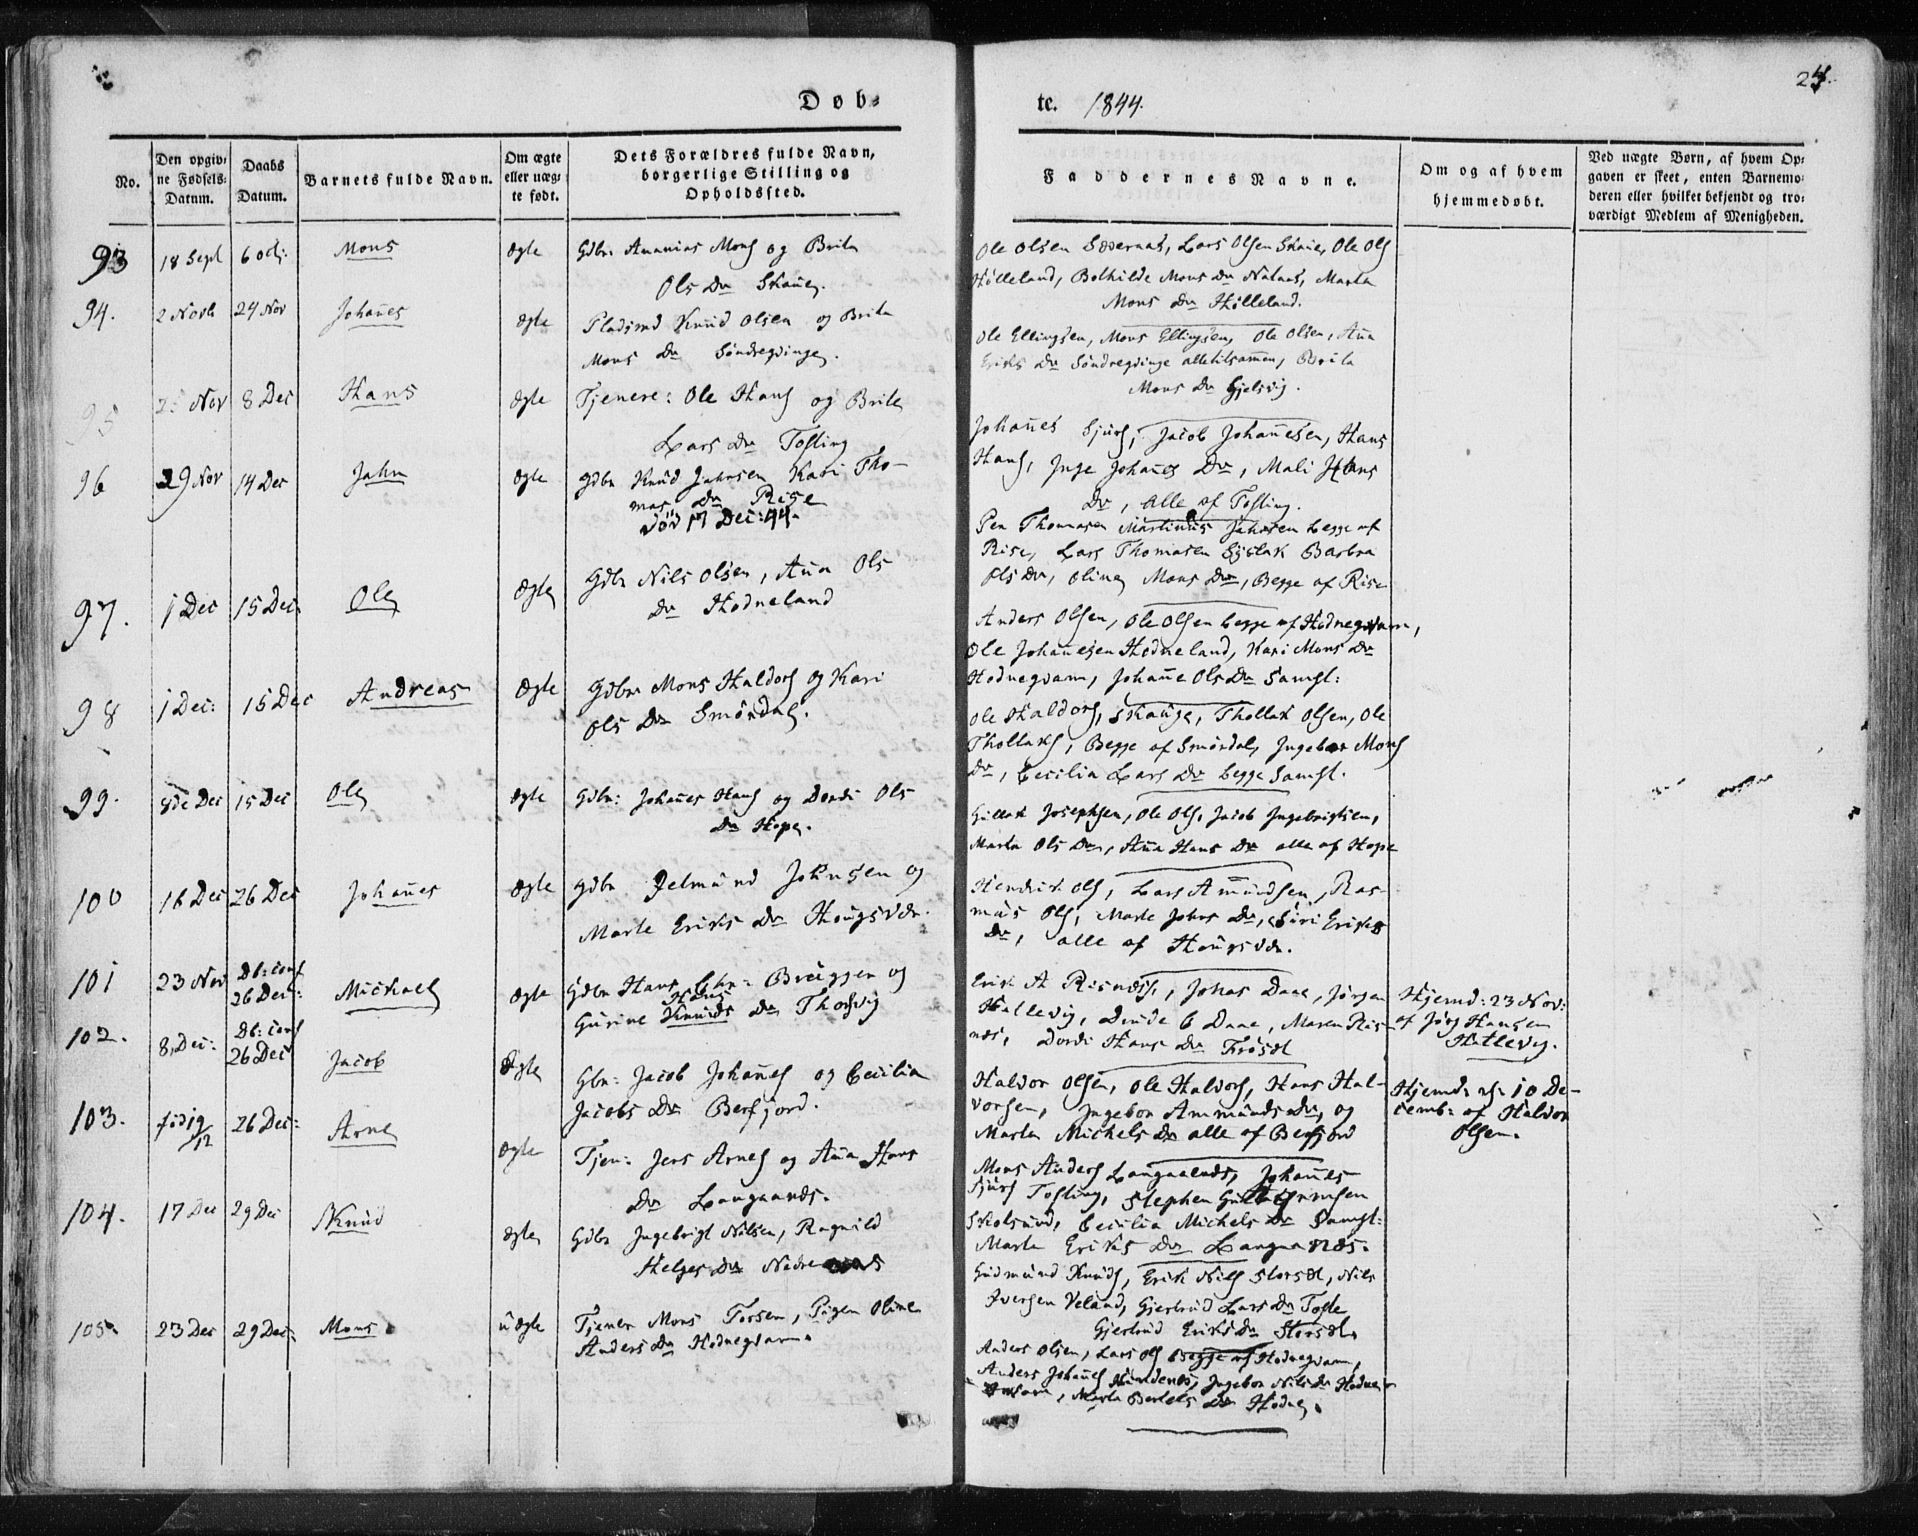 Døb-
No.
Den opgiv-
ne Fødsels-
Datum.
Daabs
Datum.
Barnets fulde Navn.
Om ægte
eller uæg-
te født.
Dets Forældres fulde Navn,
borgerlige Stilling og
Opholdssted.
93 18 Sept 6 Oct: Mons Ægte Gdbr: Ananias Mons og Brite
Ols Dr Skaue
94. 2 Novb 24 Nov Johanes Ægte Pladsmd Knud Olsen og Brita
Mons Dr Søndregvinge.
95 Nov 8 Dec Hans Ægte Tjenere: Ole Hans og Brite
Lars Dr Tosling
96 29 Nov 14 Dec Jahn Ægte Gdbr Knud Jahnsen Kari Tho-
mas Dr Rise
død 17 Dec: 44.
97. 1 Dec 15 Dec Ole Ægte Gdbr Nils Olsen, Ana Ols
Dr Hodneland
98 1 Dec: 15 Dec Andreas Ægte Gdbr Mons Haldors og Kari
Ols Dr Smørdal.
99. 8de Dec 15 Dec Ole Ægte Gdbr: Johanes Hans og Dordi Ols
Dr Hope.
100 16 Dec 26 Dec Johanes Ægte Gdbr Jelmund Johnsen og
Marte Eriks Dr Hougsvær.
101 23 Nov Db: conf
26 Dec: Michael Ægte Gdbr Hans Chr: Brüggen og
Gurine Hans Dr Thorsvig
102. 8, Dec: Db: conf
26 Dec Jacob Ægte Gbr: Jacob Johanes og Cecilia
Jacobs Dr Berfjord.
103. 26 Dec: Arne Ægte Tjen: Jens Arnes og Ana Hans
Dr Langaards.
104. 17 Dec 29 Dec Knud Ægte Gdbr Ingebrigt Nilsen, Ragnild
Helges Dr Nedre
105. 23 Dec 29 Dec: Mons uægte Tjener Mons Torsen, Pigen Oline
Anders Dr Hodnegvam.
te. 1844.
24.
Faddernes Navne.
Om og af hvem
hjemmedøbt.
Ved uægte Børn, af hvem Op-
gaven er skeet, enten Barnemo-
deren eller hvilket bekjendt og tro-
værdigt Medlem af Menigheden.
Ole Olsen Sævernas, Lars Olsen Skaue, Ole Ols
Hølleland, Bolhilde Mons Dr Natnas, Marta
Mons Dr Hølleland.
Ole Ellingsen, Mons Ellingsen, Ole Olsen, Ana
Eriks Dr Søndregvinge alletilsamen, Brita
Mons Dr Gjelsvig.
Johanes Sjurs, Jacob Johanesen, Hans
Hans, Inge Johanes Dr, Mali Hans
Dr, alle af Tosling.
Peu Thomasen Martinus Jahnsen begge af
Rise, Lars Thomasen Barbra
Ols Dr, Oline Mons Dr, Begge af Rise
Anders Olsen, Ole Olsen begge af Hodnegvam,
Ole Johanesen Hodneland, Kari Mons Dr
Hodnegvam, Johane Ols Dr Samst:
Ole Haldors, Skauge, Thollak Olsen, Ole
Thollaks, Begge af Smørdal, Ingebor Mons
Dr, Cecilia Lars Dr begge Samst.
Gullak Josephsen, Ole Ols, Jacob Ingebrigtsen,
Marta Ols Dr, Ana Hans Dr alle af Hope
Hendrik Ols, Lars Amundsen, Ras-
mus Ols, Marte Johns Dr, Siri Eriks
Dr, alle af Hougsvær.
Erik A Risnæss, Johas Daae, Jørgen
Hallevig, Daae, Maren Ris-
næs, Dordi Hans Dr
Hjemd: 23 Nov:
af Jørg Hansen
Hatlevig.
Haldor Olsen, Ole Haldors, Hans Hal-
vorsen, Ingebor Ammunds Dr, og
Marta Michels Dr alle af Berfjord
Hjemd: 10 De-
cemb: af Haldor
Olsen.
Mons Anders Langaards, Johanes
Sjurs Tosling, Stephen
Skolsund, Cecilia Michels Dr Samst:
Marta Eriks Dr
Gudmund Knuds, Erik Nils Nils
Iversen Veland, Gjertrud Lars Dr
Gjertrud Eriks Dr
Anders Olsen, Lars Ols begge af Hodnegvam,
Anders Johanes Ingebor Nils Dr Hodne-
gvam, Marta Bertels Dr Hodne.